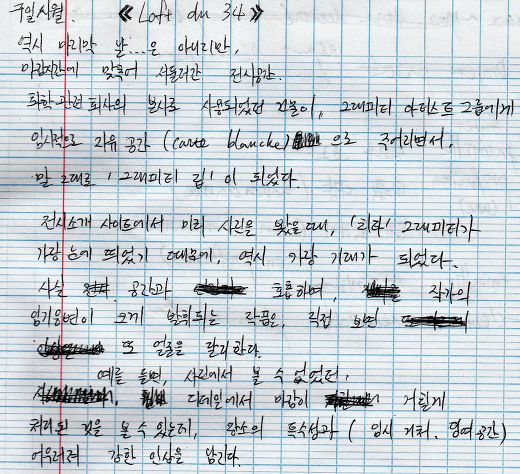 구일시월. 《Loft du 34》
역시 마지막 날...은 아니지만,
마감시간에 맞춰 서둘러간 전시공간.
화학관련 회사의 본사로 사용되었던 건물이, 그래피티 아티스트 그룹에게
임시적으로 자유 공간 (carte blanche) 으로 주어지면서,
말 그대로 '그래피티 집' 이 되었다.
전시소개 사이트에서 미리 사진을 봤을 때, 그래피티가
가장 눈에 띄었기 때문에, 역시 가장 기대가 되었다.
사실 공간과 호흡하며, 작가의
임기응변이 크게 발휘되는 작품은, 직접 보면
또 얼굴을 달리한다.
예를 들면, 사진에서 볼 수 없었던,
디테일에서 마감이 거칠게
처리된 것을 볼 수 있는데, 장소의 특수성과 ( 임시 거처. 공간)
어우러져 강한 인상을 남긴다.